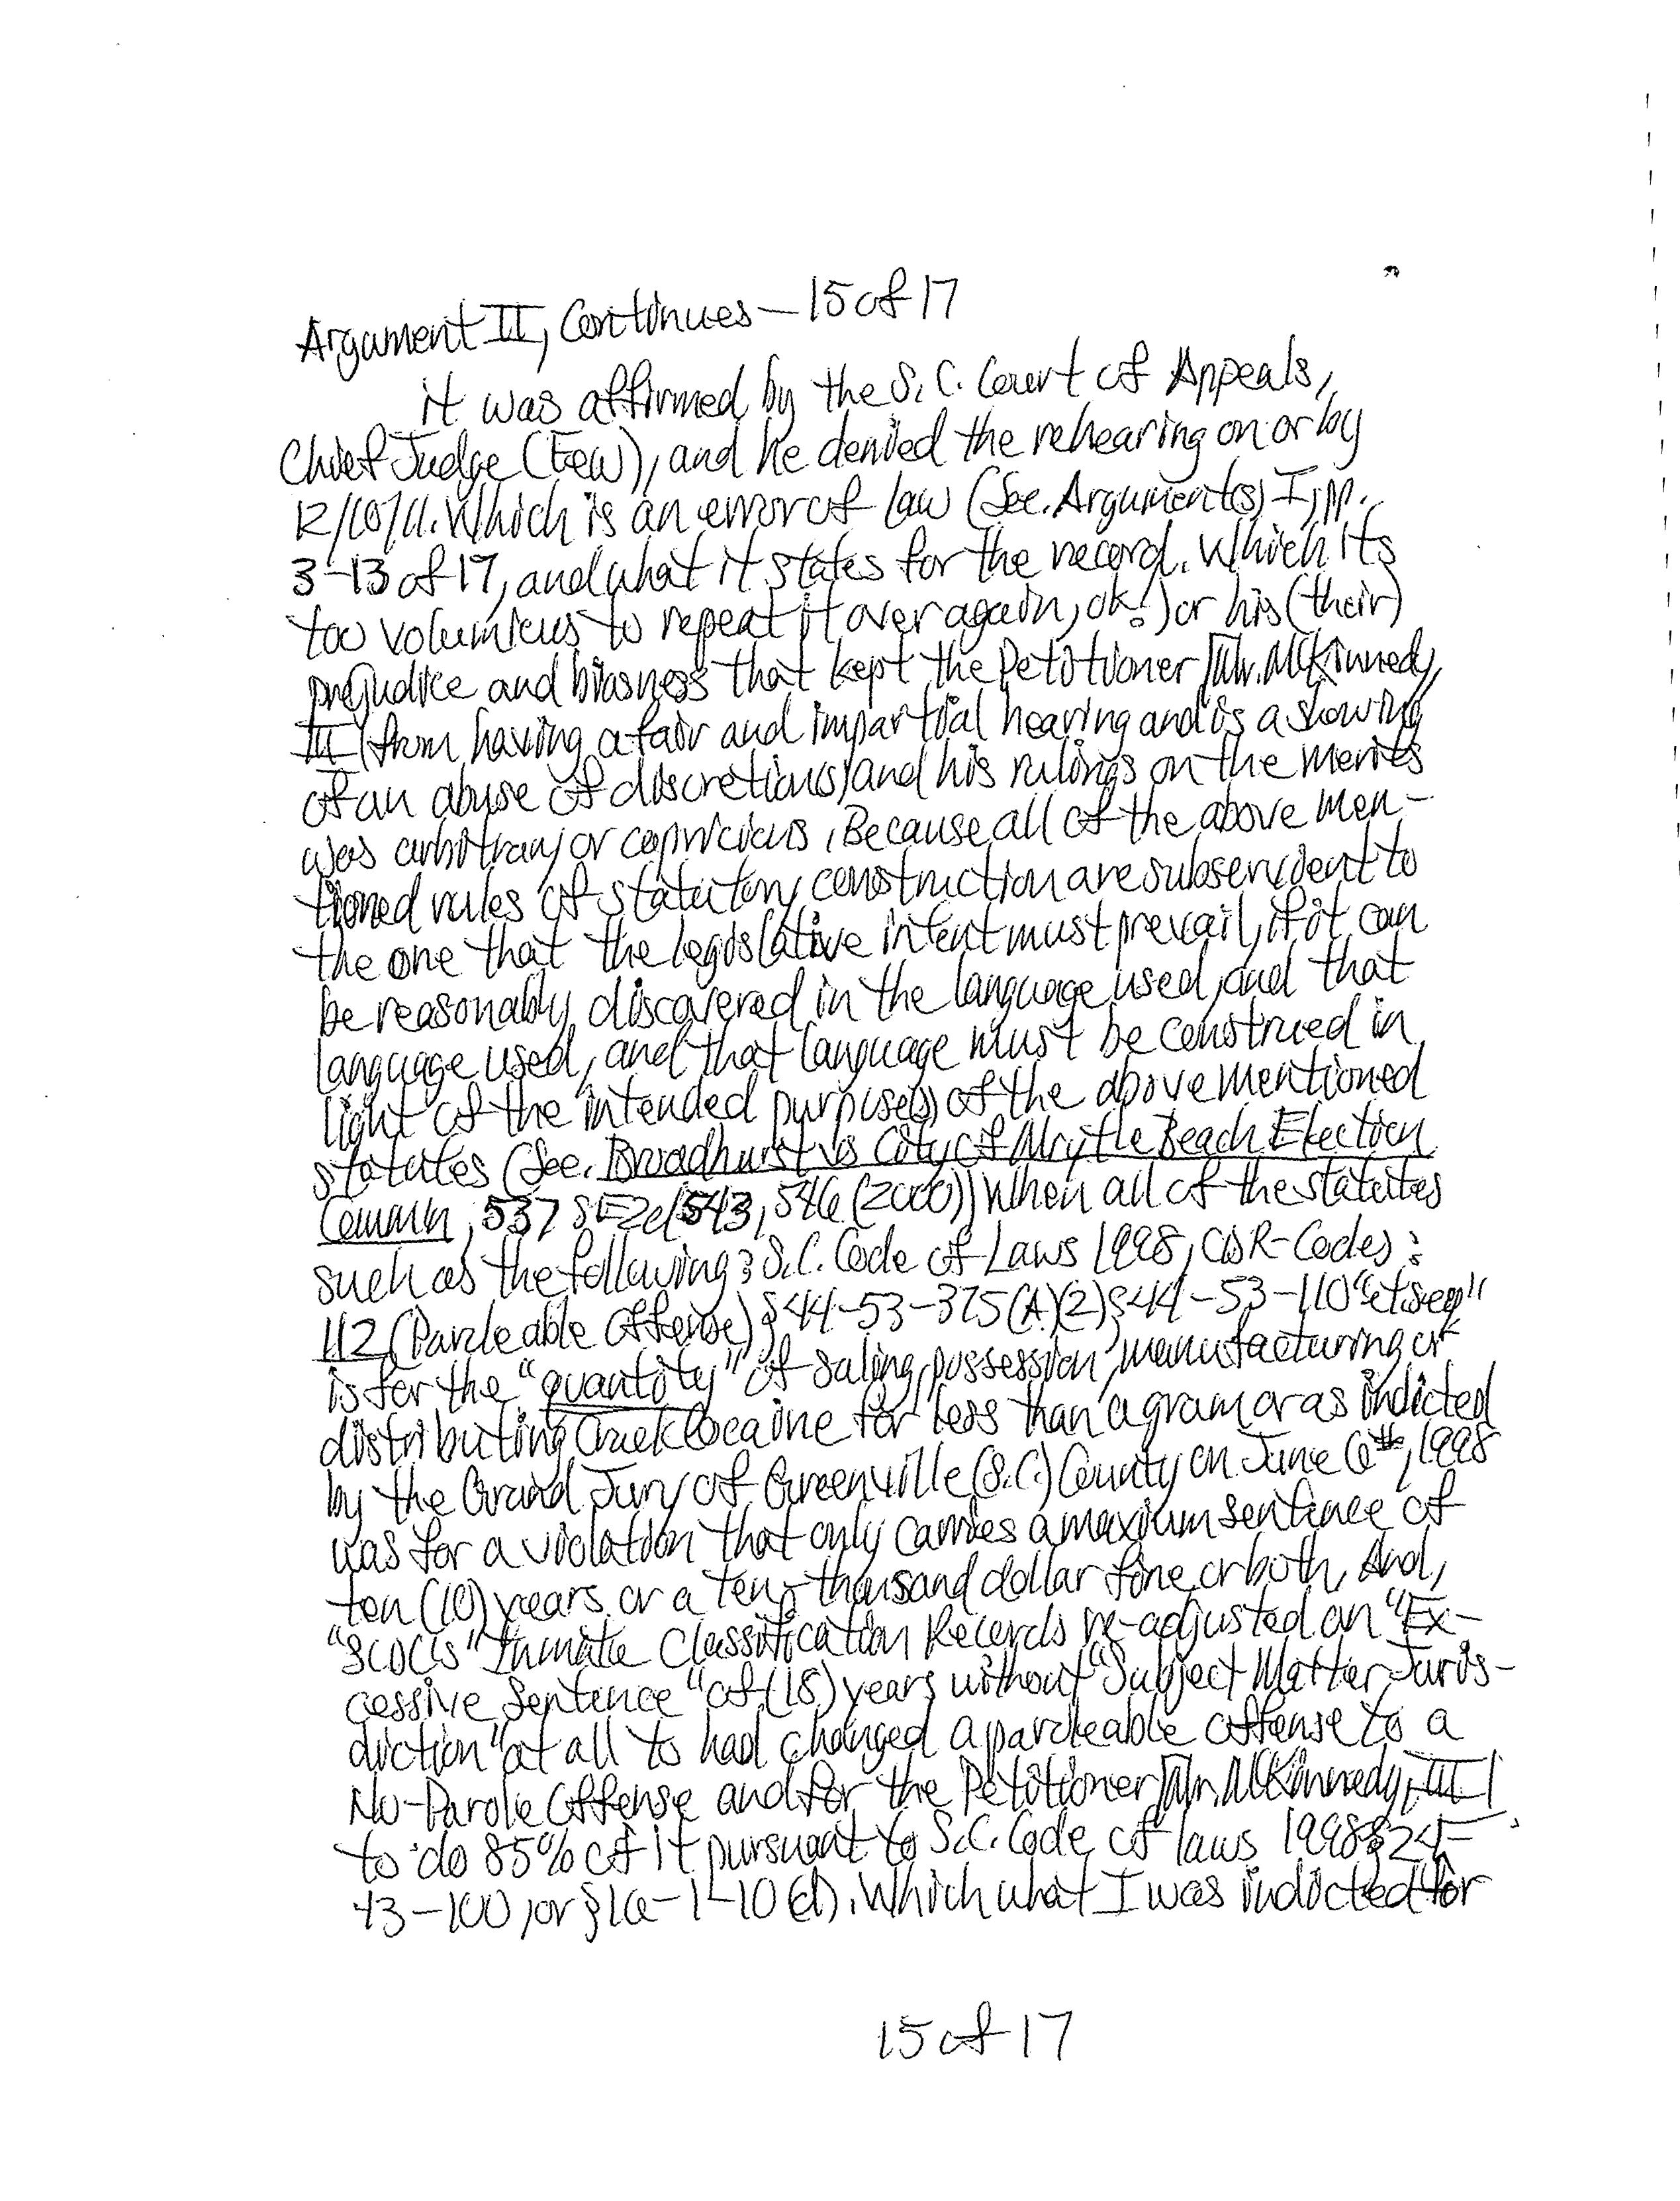 Argument II, Continues - 15 of 17
it was affirmed by the S.C. Court of Appeals,
Chief Judge (Few), and he denied the rehearing on or by
Which is an error of law (See. Argument(s) I, pp.
3-13 of 17, and what it states for the record. Which its
too volumicus to repeat it over again, ok!) or his (their)
prejudice and biasness that kept the Petitioner [Mr. McKinnedy,
III] from having a fair and impartial hearing and is a showing
of an abuse of discretion(s) and his rulings on the merits
was arbitrary or capricious. Because all of the above men-
tioned rules of statutory construction are subservient to
the one that the legislative intent must prevail, if it can
be reasonably discovered in the language used, and that
language used, and that language must be construed in
light of the intended purpose(s) of the above mentioned
statutes (See. Broadhurst vs City of Myrtle Beach Election
Commn, 537 SE2d 543, 546 (2000)) When all of the statutes
such as the following: S.C. Code of Laws 1998, CDR-Codes:
112 (Paroleable Offense) § 44-53-375(A)(2) § 44-53-110 "et seq"
is for the "quantity" of saling, possession, manufacturing or
distributing Crack Cocaine for less than a gram or as indicted
by the Grand Jury of Greenville (S.C.) County on June 6th, 1998
was for a violation that only carries a maxium sentence of
ten (10) years or a ten-thousand dollar fine or both. And,
"SCDC's" Inmate Classification Records re-adjusted an "Ex-
cessive Sentence" of (18) years without "Subject Matter Juris-
diction" at all to had changed a paroleable offense to a
No-Parole Offense and for the Petitioner [Mr. McKinnedy, III]
to do 85% of it pursuant to S.C. Code of laws 1998 § 24-
13-100, or § 16-1-10(d). Which what I was indicted for
15 of 17